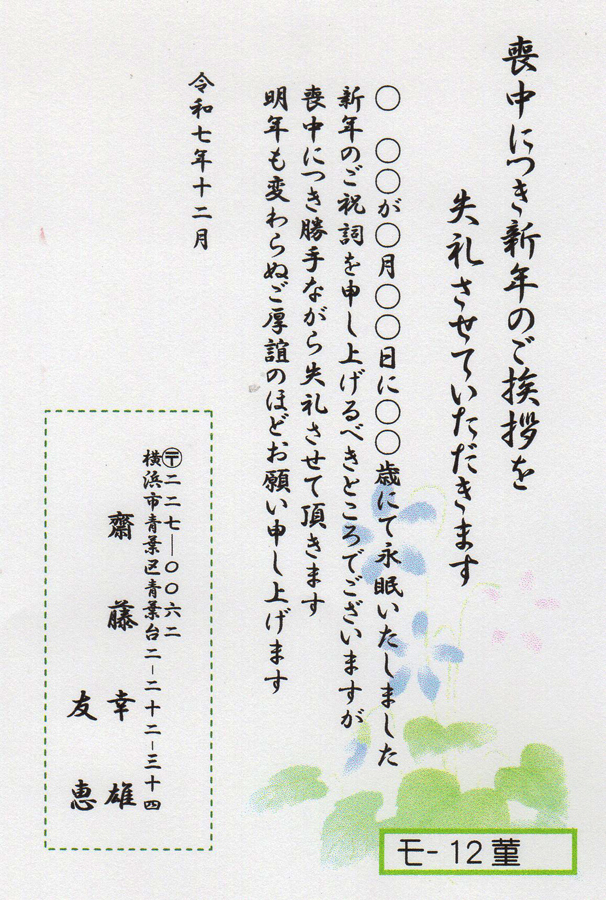 喪中につき新年のご挨拶を
失礼させていただきます
〇　〇〇が〇月〇〇日に〇〇歳にて永眠いたしました
新年のご祝詞を申し上げるべきところでございますが
喪中につき勝手ながら失礼させて頂きます
明年も変わらぬご厚誼のほどお願い申し上げます
令和七年十二月
〒二二七―〇〇六二
横浜市青葉区青葉台二―二十二―三十四
齋藤幸雄
友恵
モ-12菫